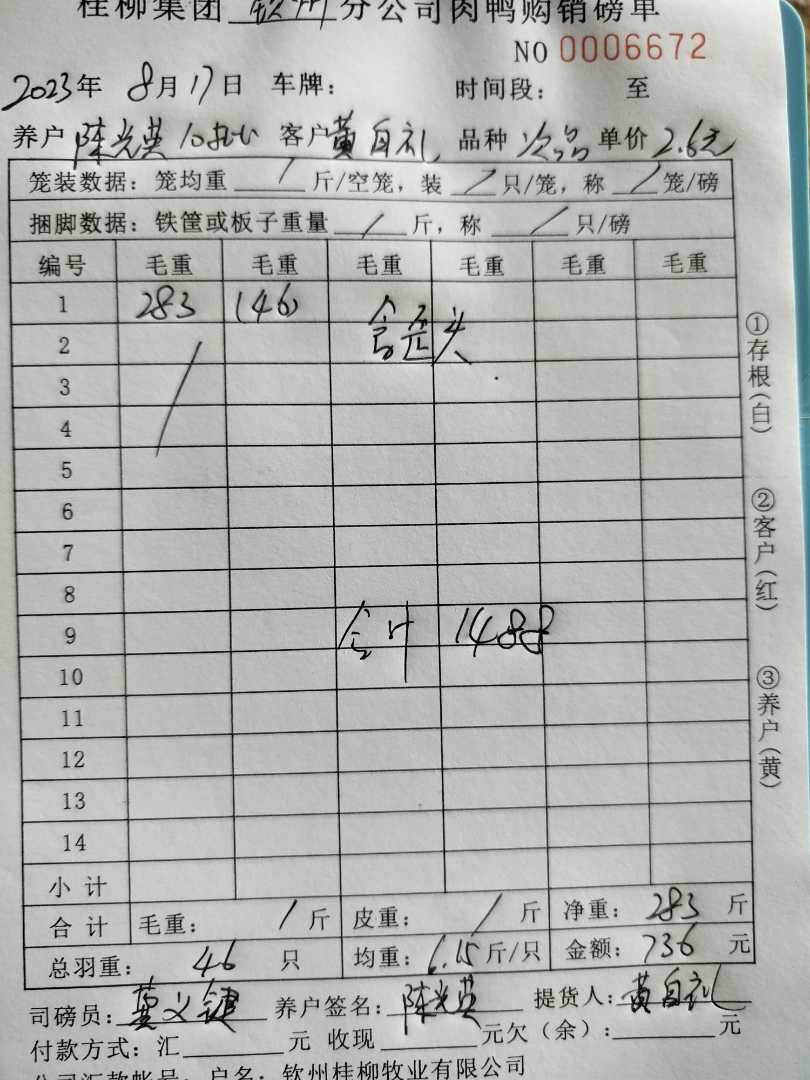 桂柳集团 钦州 分公司肉鸭购销磅单
NO 0006672
2023年 8月17日 车牌： 时间段： 至
养户 陈光英 客户 黄自礼 品种 次品 单价 2.6元
笼装数据：笼均重 / 斤/空笼，装 / 只/笼，称 / 笼/磅
捆脚数据：铁筐或板子重量 / 斤，称 / 只/磅
编号 毛重 毛重 毛重 毛重 毛重 毛重
1 283 (46)
含歪头
2
3
4
5
6
7
8
9 合计 1488
10
11
12
13
14
小计
合计 毛重： / 斤 皮重： / 斤 净重：283 斤
总羽重： 46 只 均重：6.15 斤/只 金额：736 元
司磅员： 养户签名：陈光英 提货人：黄自礼
付款方式：汇 元 收现 元欠（余）： 元
公司汇款帐号：户名：钦州桂柳牧业有限公司
①存根（白）
②客户（红）
③养户（黄）